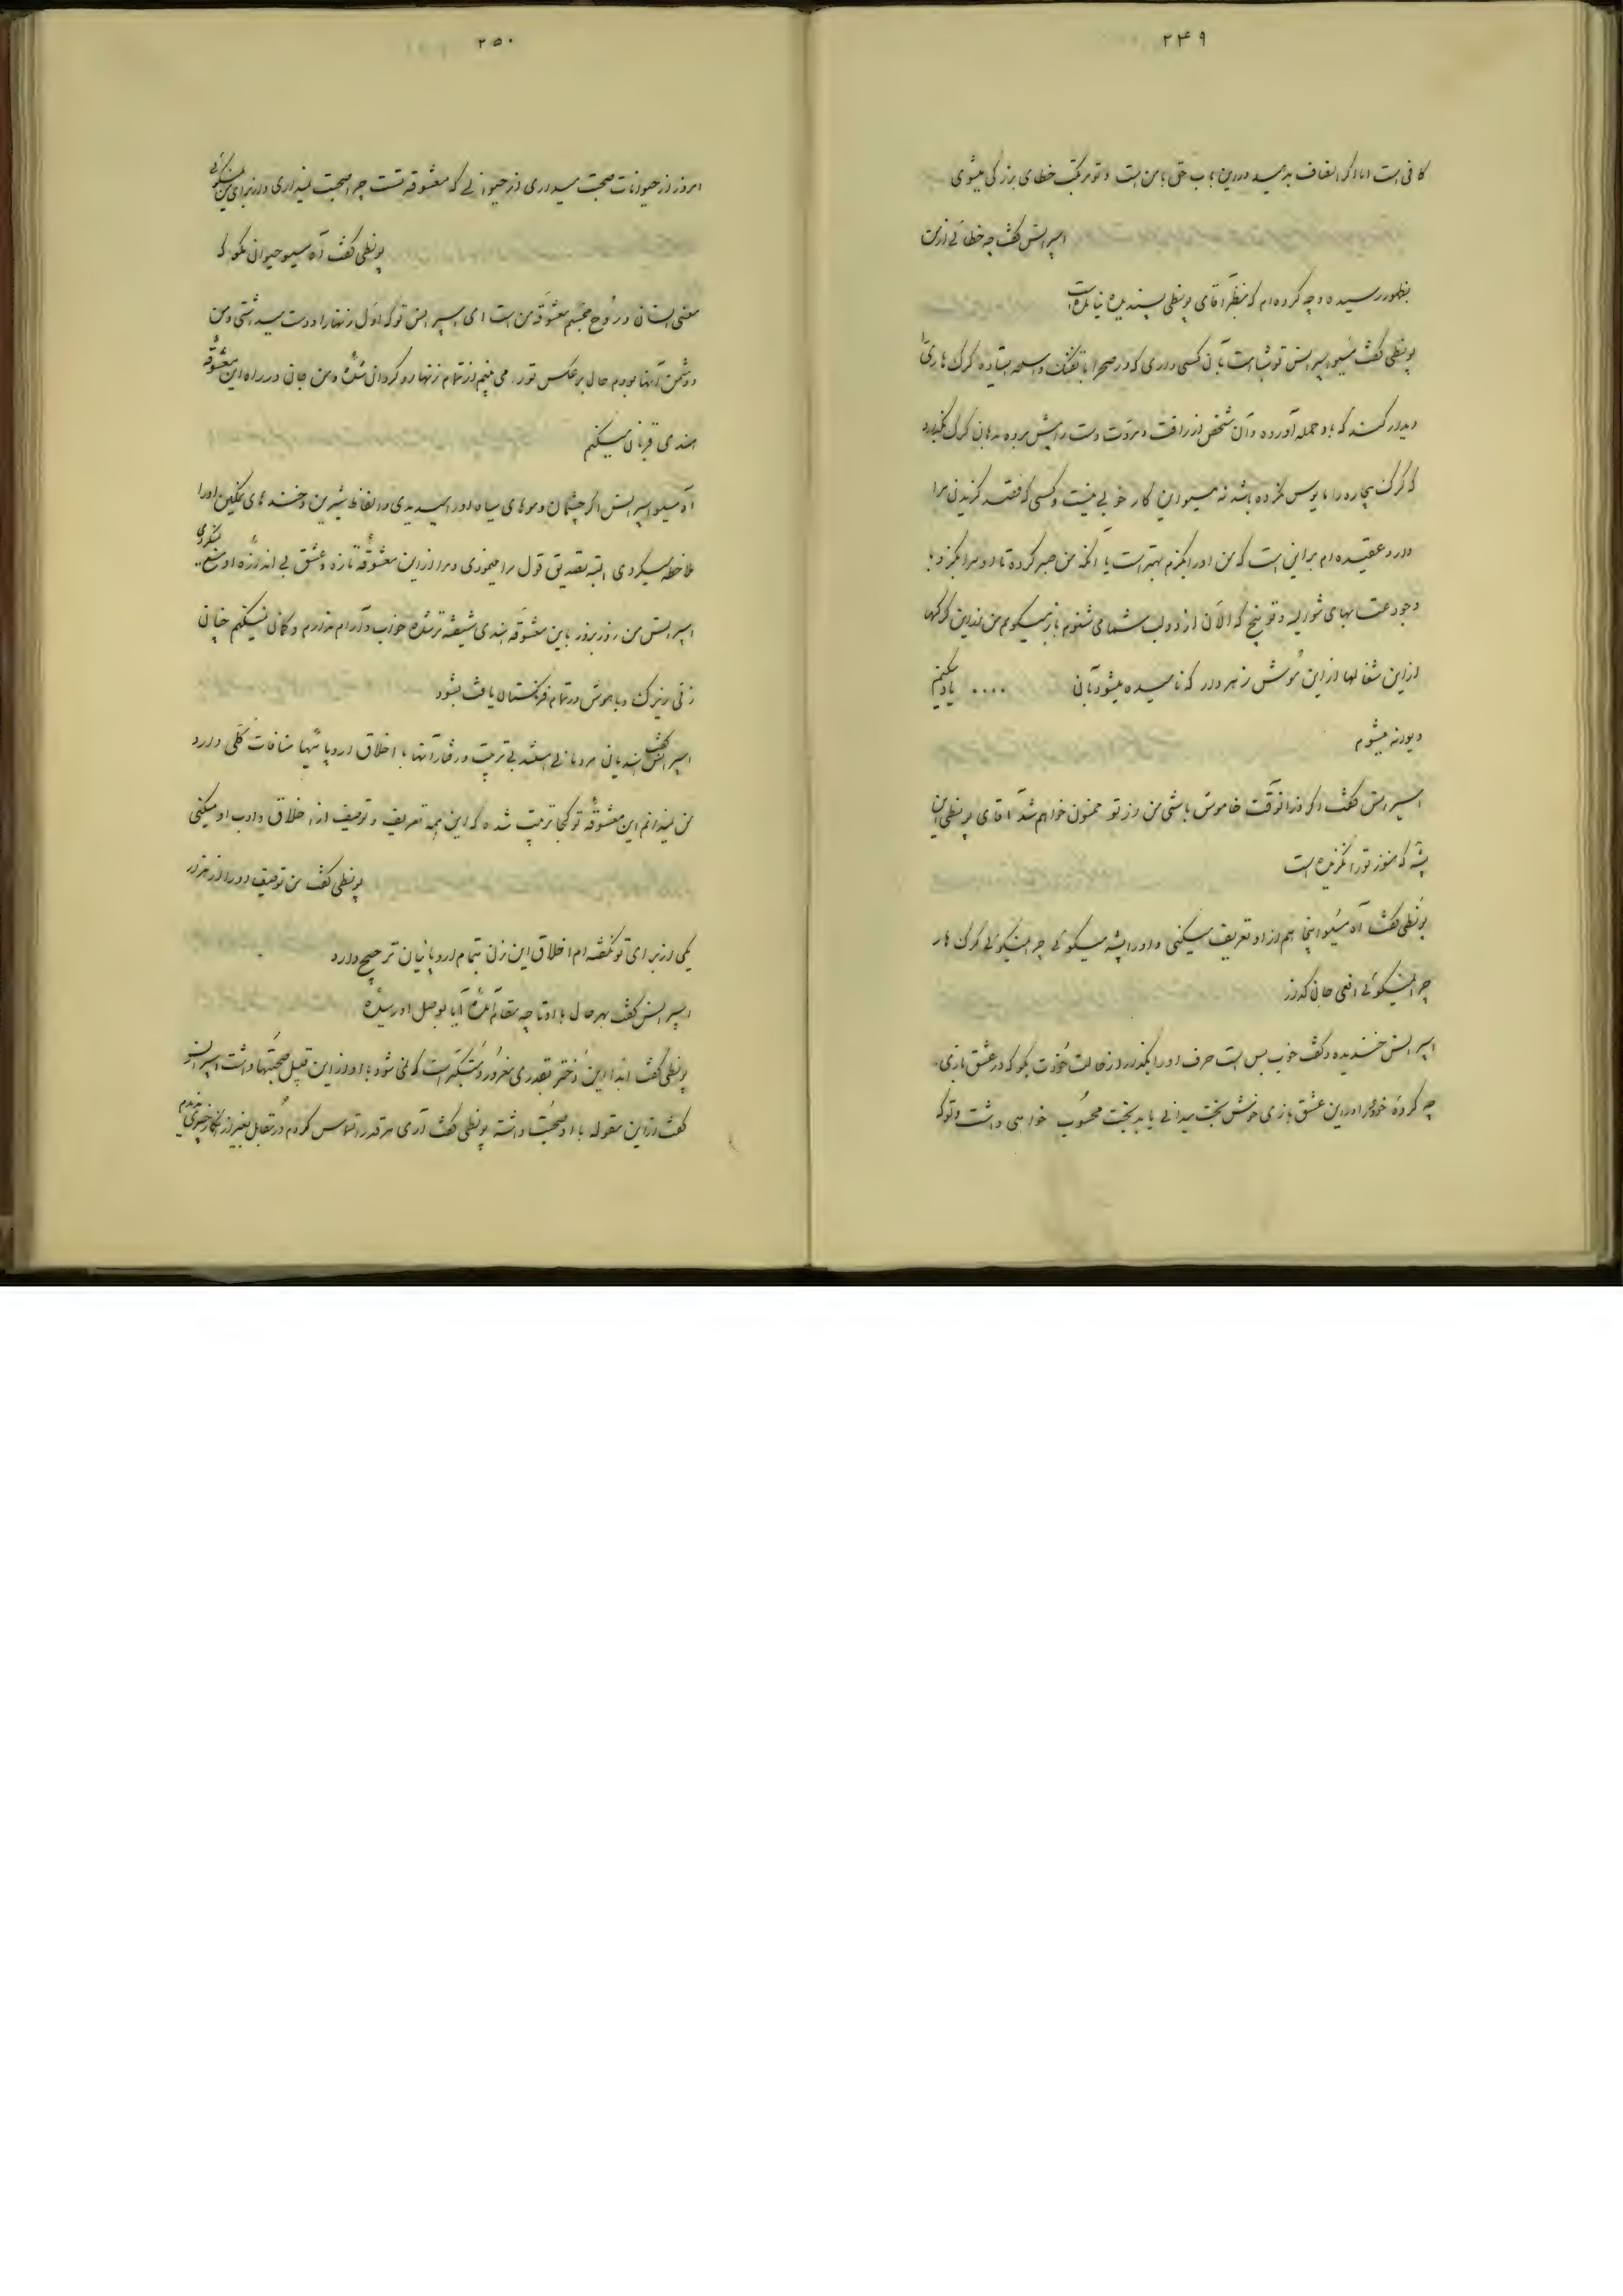 ۲۴۹
کافی است اما اگر انصاف بدهید در این باب حق با من است و تو مرتکب خطای بزرگی میشوی
اسپرانس گفت چه خطائی از من
بظهور رسیده و چه کرده‌ام که بنظر آقای بونطی پسندیده نیامده است
بونطی گفت مسیو اسپرانس تو شباهت بآن کسی داری که در صحرا با تفنگ و اسلحه ایستاده گرگ هاری را
دیدار کند که باو حمله آورده و آن شخص از رأفت و مروت دست را پیش برده بدهان گرگ بگذارد
که گرگ بیچاره را مأیوس نکرده باشد نه مسیو این کار خوبی نیست و کسی که قصد گزیدن مرا
دارد عقیده‌ام بر این است که من او را بگزم بهتر است یا آنکه من صبر کرده تا او مرا بگزد با
وجود عتابهای شما و توبیخ که الآن از دو لب شما می شنوم باز میگویم من از این گرگها
از این شغالها از این موش زهردار که نامیده میشود بآنی .... یاد میکنم
دیوانه میشوم
اسپرانس گفت اگر فوراً ساکت خاموش باشی من از تو ممنون خواهم شد آقای بونطی این
پشه که هنوز تو را نگزیده است
بونطی گفت آه مسیو اینجا هم از او تعریف میکنی و او را پشه میگوئی چرا نمیگوئی گرگ هار
چرا نمیگوئی افعی جان گداز
اسپرانس خندیده و گفت خوب بس است حرف او را بگذار از حالت خودت بگو که در عشق بازی
چه کرده خود را در این عشق بازی خوش بخت میدانی یا بدبخت محسوب خواهی داشت و تو که
۲۵۰
امروز از حیوانات صحبت میداری از حیوانی که معشوقه تست چرا صحبت نمیداری و از برای من نمیگوئی
بونطی گفت آه مسیو حیوانی مگو که
معنی انسان و روح مجسم معشوقه من است ای اسپرانس تو که اول زنها را دوست میداشتی و من
دشمن آنها بودم حال بر عکس تو را می بینم از تمام زنها رو گردان شده و من جان در راه این معشوقه
هندی قربان میکنم
آه مسیو اسپرانس اگر چشمان و موهای سیاه او را میدیدی و الفاظ شیرین و خنده های نمکین او را
ملاحظه میکردی البته تصدیق قول مرا مینمودی و مرا از این معشوقه تازه و عشق بی اندازه او منع نمیکردی
اسپرانس من روز بروز باین معشوقه هندی شیفته تر شده خواب و آرام ندارم و گمان نمیکنم چنان
زنی زیرک و باهوش در تمام فرنگستان یافت بشود
اسپرانس گفت هندیان مردمانی هستند بی تربیت و رفتار آنها با اخلاق اروپائیها منافات کلی دارد
من نمیدانم این معشوقه تو کجا تربیت شده که این همه تعریف و توصیف از اخلاق و ادب او میکنی
بونطی گفت من توصیف او را از هزار
یکی از برای تو نگفته‌ام اخلاق این زن بتمام اروپائیان ترجیح دارد
اسپرانس گفت بهر حال با او تا چه مقام آمده آیا بوصل او رسیده
بونطی گفت ابداً این دختر بقدری مغرور و متکبر است که نمی شود با او از این قبیل صحبتها داشت اسپرانس
گفت از این مقوله با او صحبت داشته بونطی گفت آری هر قدر التماس کردم در مقابل بغیر از انکار چیزی ندیدم